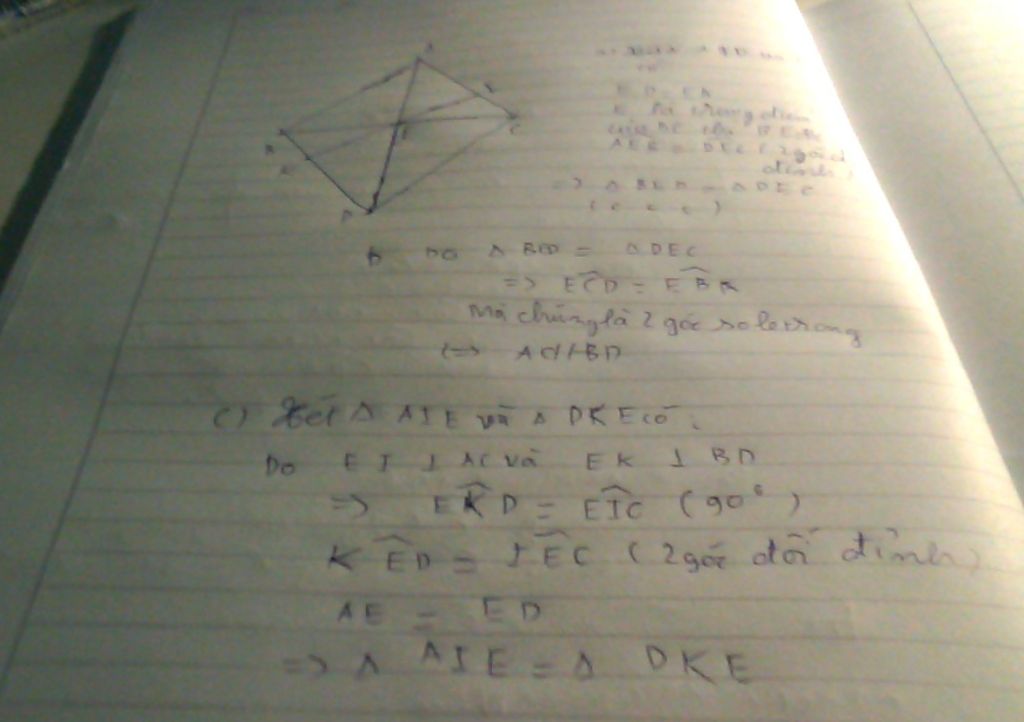 A
I
B
E
C
K
D
ED = EA
E là trung điểm
của BC cho BE = EC
AEB = DEC (2 góc đ
đỉnh)
=> Δ BED = Δ DEC
(c c c)
b Do Δ BED = Δ DEC
=> EĈD = EB̂K
mà chúng là 2 góc so le trong
(=> AC//BD
c) Xét Δ AIE và Δ DKE có:
Do EI ⊥ AC và EK ⊥ BD
=> EK̂D = EÎC (90°)
KÊD = IÊC (2 góc đối đỉnh)
AE = ED
=> Δ AIE = Δ DKE